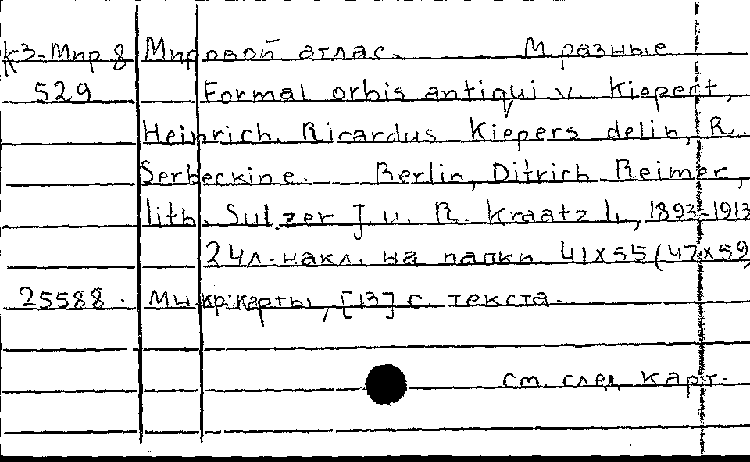 К3-Мир 8 Мировой атлас. М разные
529 Formal orbis antiqui v. Kiepert,
Heinrich. Ricardus Kiepers delin, R.
Serbeckine. Berlin, Ditrich Reimer,
lith. Sulzer J. u. R. Kraatz L, 1893-1913
24л. накл. на папки 41x55 (47x59)
25588. Мн. кр. карты, [13] с. текста.
см. след карт.